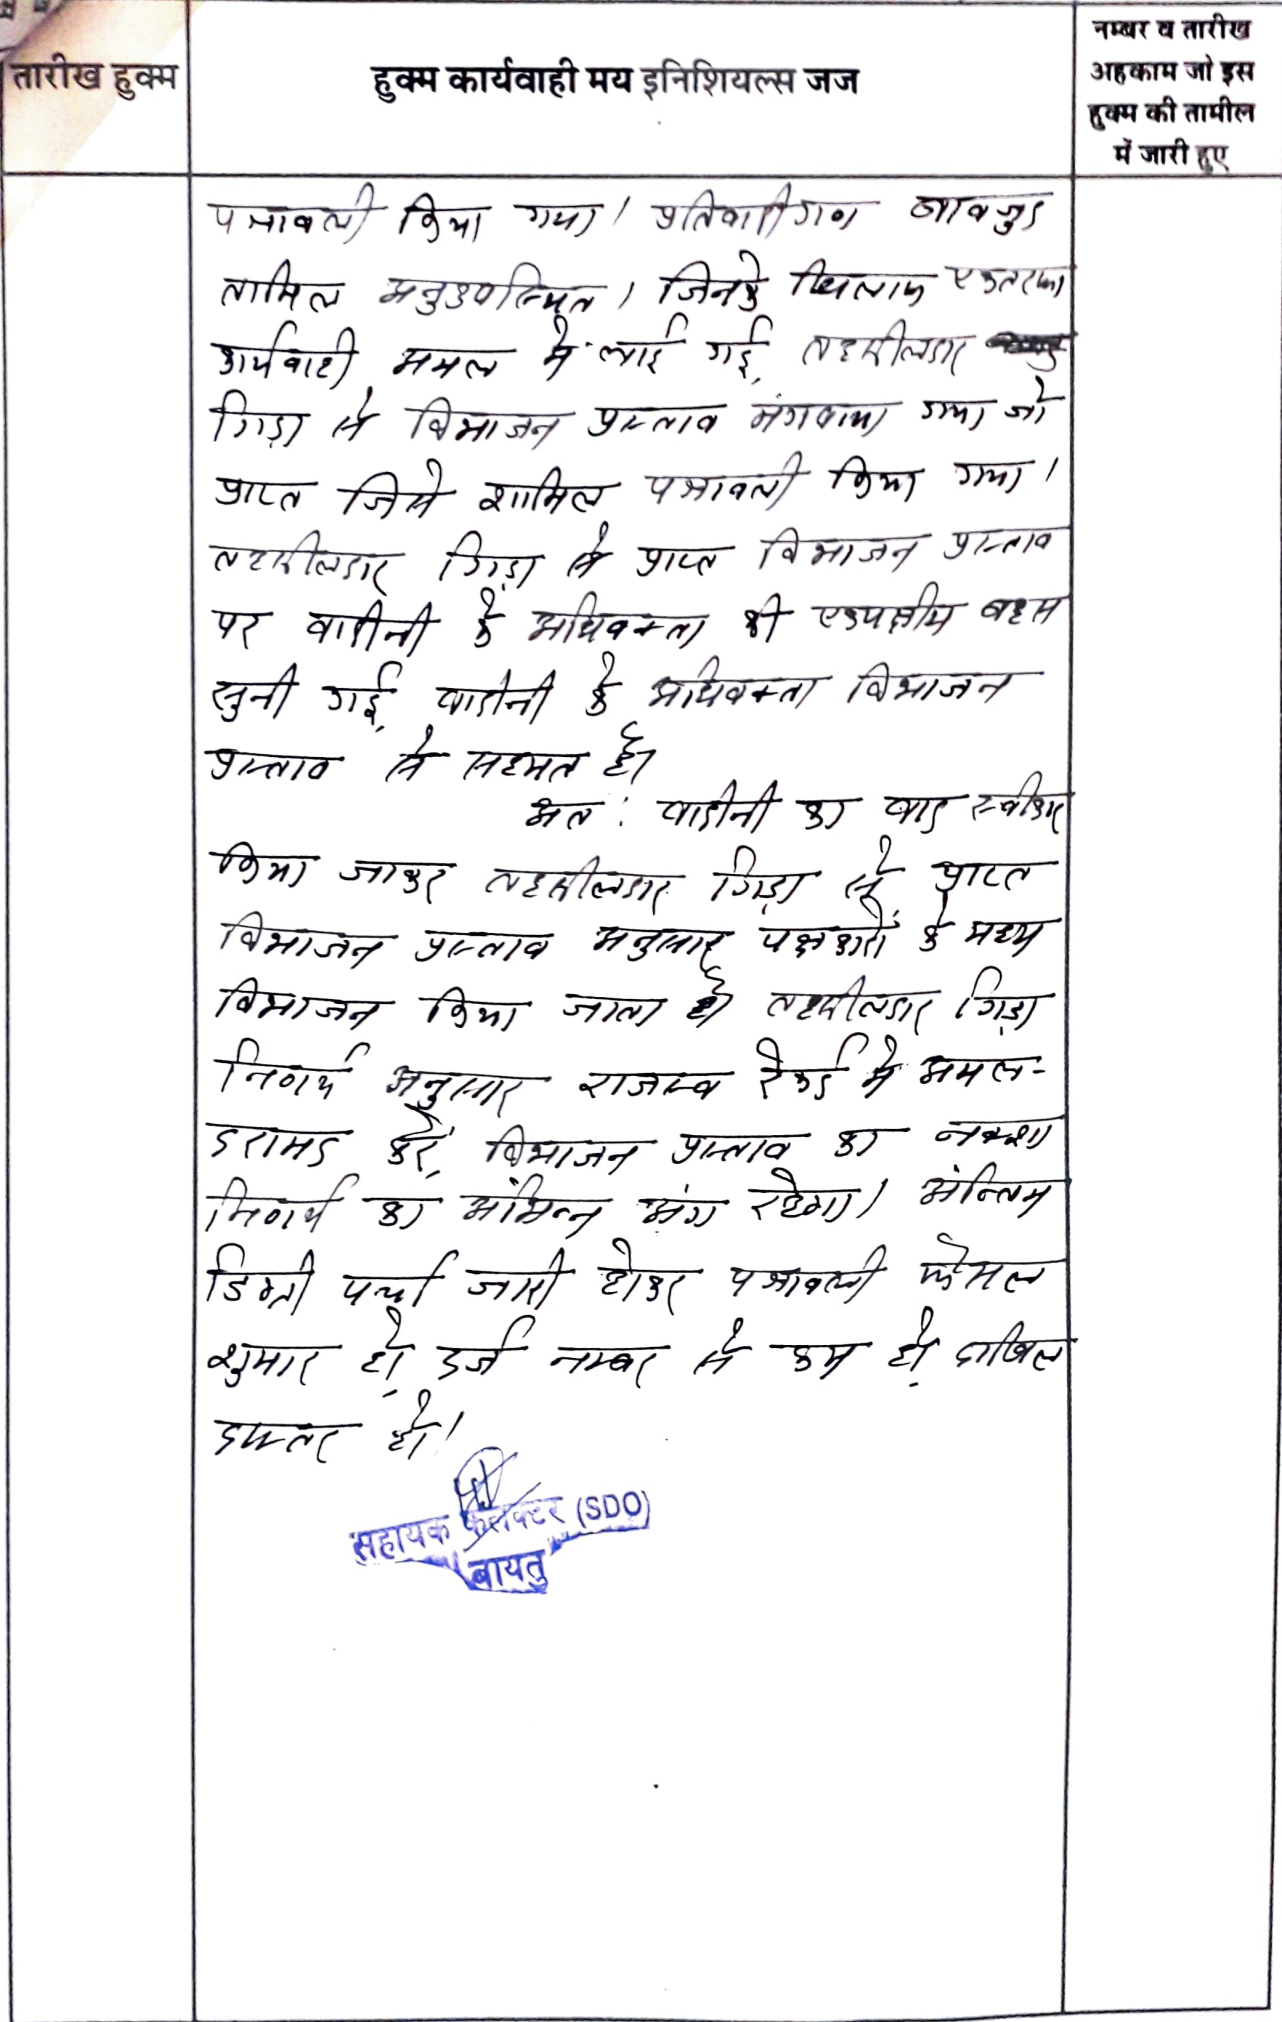 तारीख हुक्म
हुक्म कार्यवाही मय इनिशियल्स जज
नम्बर व तारीख
अहकाम जो इस
हुक्म की तामील
में जारी हुए
पत्रावली किया गया। प्रतिवादीगण बावजुद
तामिल अनुउपस्थित। जिनके खिलाफ एकतरफा
कार्यवाही अमल में लाई गई, तहसीलदार
गिड़ा से विभाजन प्रस्ताव मंगवाया गया जो
प्राप्त जिसे शामिल पत्रावली किया गया।
तहसीलदार गिड़ा से प्राप्त विभाजन प्रस्ताव
पर वादीनी के अधिवक्ता की एकपक्षीय बहस
सुनी गई, वादीनी के अधिवक्ता विभाजन
प्रस्ताव से सहमत है।
अत: वादीनी का वाद स्वीकार
किया जाकर तहसीलदार गिड़ा से प्राप्त
विभाजन प्रस्ताव अनुसार पक्षकारों के मध्य
विभाजन किया जाता है। तहसीलदार गिड़ा
निर्णय अनुसार राजस्व रेकर्ड में अमल-
दरामद करें, विभाजन प्रस्ताव का नक्शा
निर्णय का अभिन्न अंग रहेगा। अंन्तिम
डिक्री पर्चा जारी होकर पत्रावली फैसल
शुमार हो, दर्ज नम्बर से कम हो, दाखिल
दफ्तर हो।
सहायक कलेक्टर (SDO)
बायतु